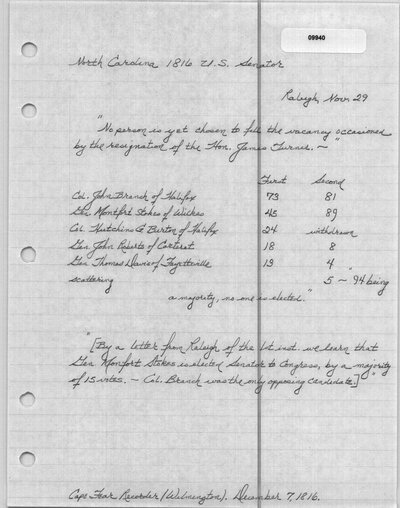 09940
North Carolina 1816 U.S. Senator
Raleigh, Nov. 29
"No person is yet chosen to fill the vacancy occasioned
by the resignation of the Hon. James Turner. ~"
First Second
Col. John Branch of Halifax 73 81
Gen. Montfort Stokes of Wilkes 45 89
Col. Hutchins G Burton of Halifax 24 withdrawn
Gen. John Roberts of Carteret 18 8
Gen. Thomas Davis of Fayetteville 13 4
scattering 5 ~ "94 being
a majority, no one is elected."
"[By a letter from Raleigh of the 1st inst. we learn that
Gen. Monfort Stokes is elected Senator to Congress, by a majority
of 15 votes. ~ Col. Branch was the only opposing candidate.]"
Cape Fear Recorder (Wilmington). December 7, 1816.